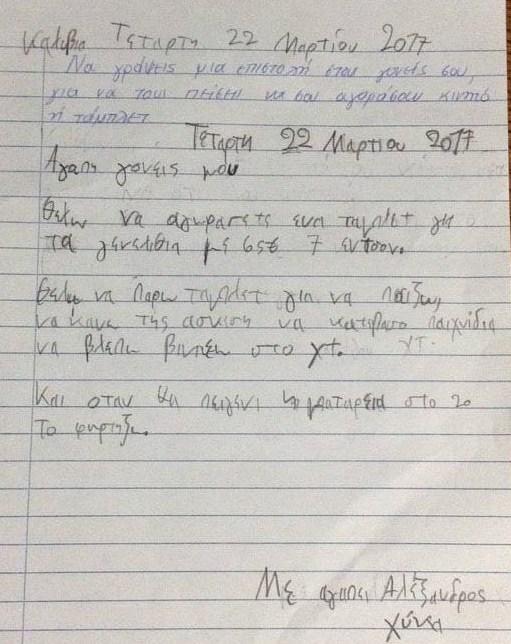 Καλυβια Τεταρτη 22 Μαρτίου 2017
Να γράψεις μια επιστολή στου γονείς σου,
για να τους πείσει να σου αγοράσουν κινητό
ή τάμπλετ
Τεταρτη 22 Μαρτιου 2017
Αγαπη γονεις μου
Θελω να αγωρασετε ενα ταμπλετ για
τα γενεθλια με 7 ιντσον.
Θελω να παρω ταμπλετ για να παιζω,
να κανω της ασκιση να κατεβασο παιχνιδια
να βλεπω βιντεω στο γτ. γτ.
Και οταν θα πειγενι η μπαταρεια στο 20
το φορτηζω.
Με αγαπει Αλέξανδρος